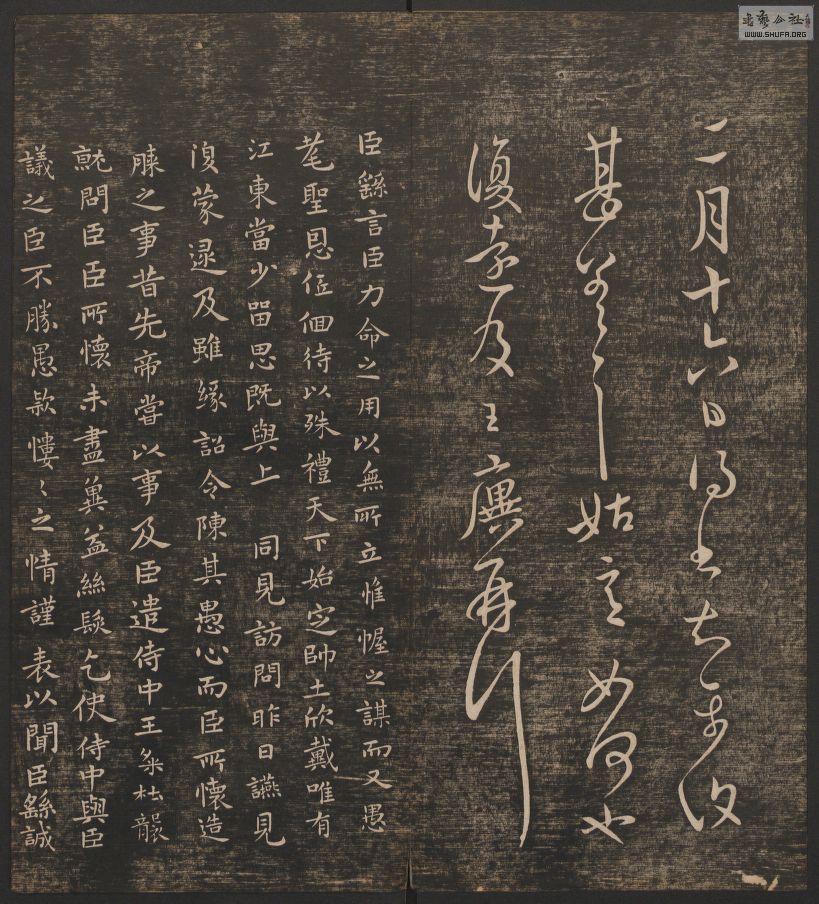 書藝公社
WWW.SHUFA.ORG
二月十六日得書
甚姑如何也
復及王廙再行
臣繇言臣力命之用以無所立惟幄之謀而又愚
耄聖恩低佪待以殊禮天下始定帥土欣戴唯有
江東當少留思既與上 同見訪問昨日讌見
復蒙逮及雖緣詔令陳其愚心而臣所懷造
膝之事昔先帝嘗以事及臣遣侍中王粲杜襲
就問臣臣所懷未盡冀益絲髮乞使侍中與臣
議之臣不勝愚款慺〻之情謹表以聞臣繇誠